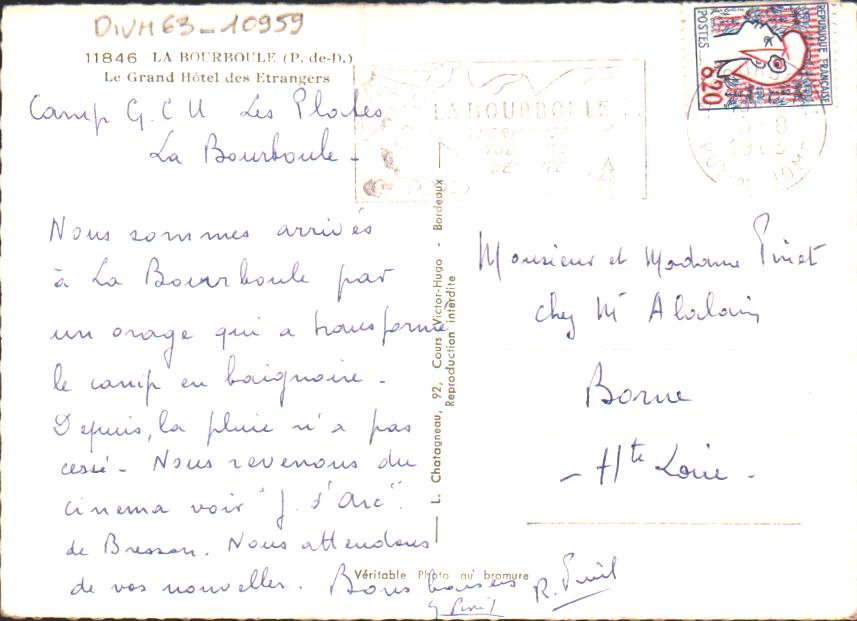 DIVM63-10959
11846 LA BOURBOULE (P. de-D.)
Le Grand Hôtel des Etrangers
Camp G.C.U Les Plates
La Bourboule -
Nous sommes arrivés
à La Bourboule par
un orage qui a transformé
le camp en baignoire -
Depuis, la pluie n'a pas
cessé - Nous revenons du
cinema voir "J. d'Arc"
de Bresson. Nous attendons
de vos nouvelles. Bons baisers
L. Chatagneau, 92, Cours Victor-Hugo - Bordeaux
Reproduction interdite
Véritable Photo au bromure
REPUBLIQUE FRANÇAISE
POSTES
0,20
LA BOURBOULE
1963
Monsieur et Madame Pinet
chez Mr
Borne
- Hte Loire -